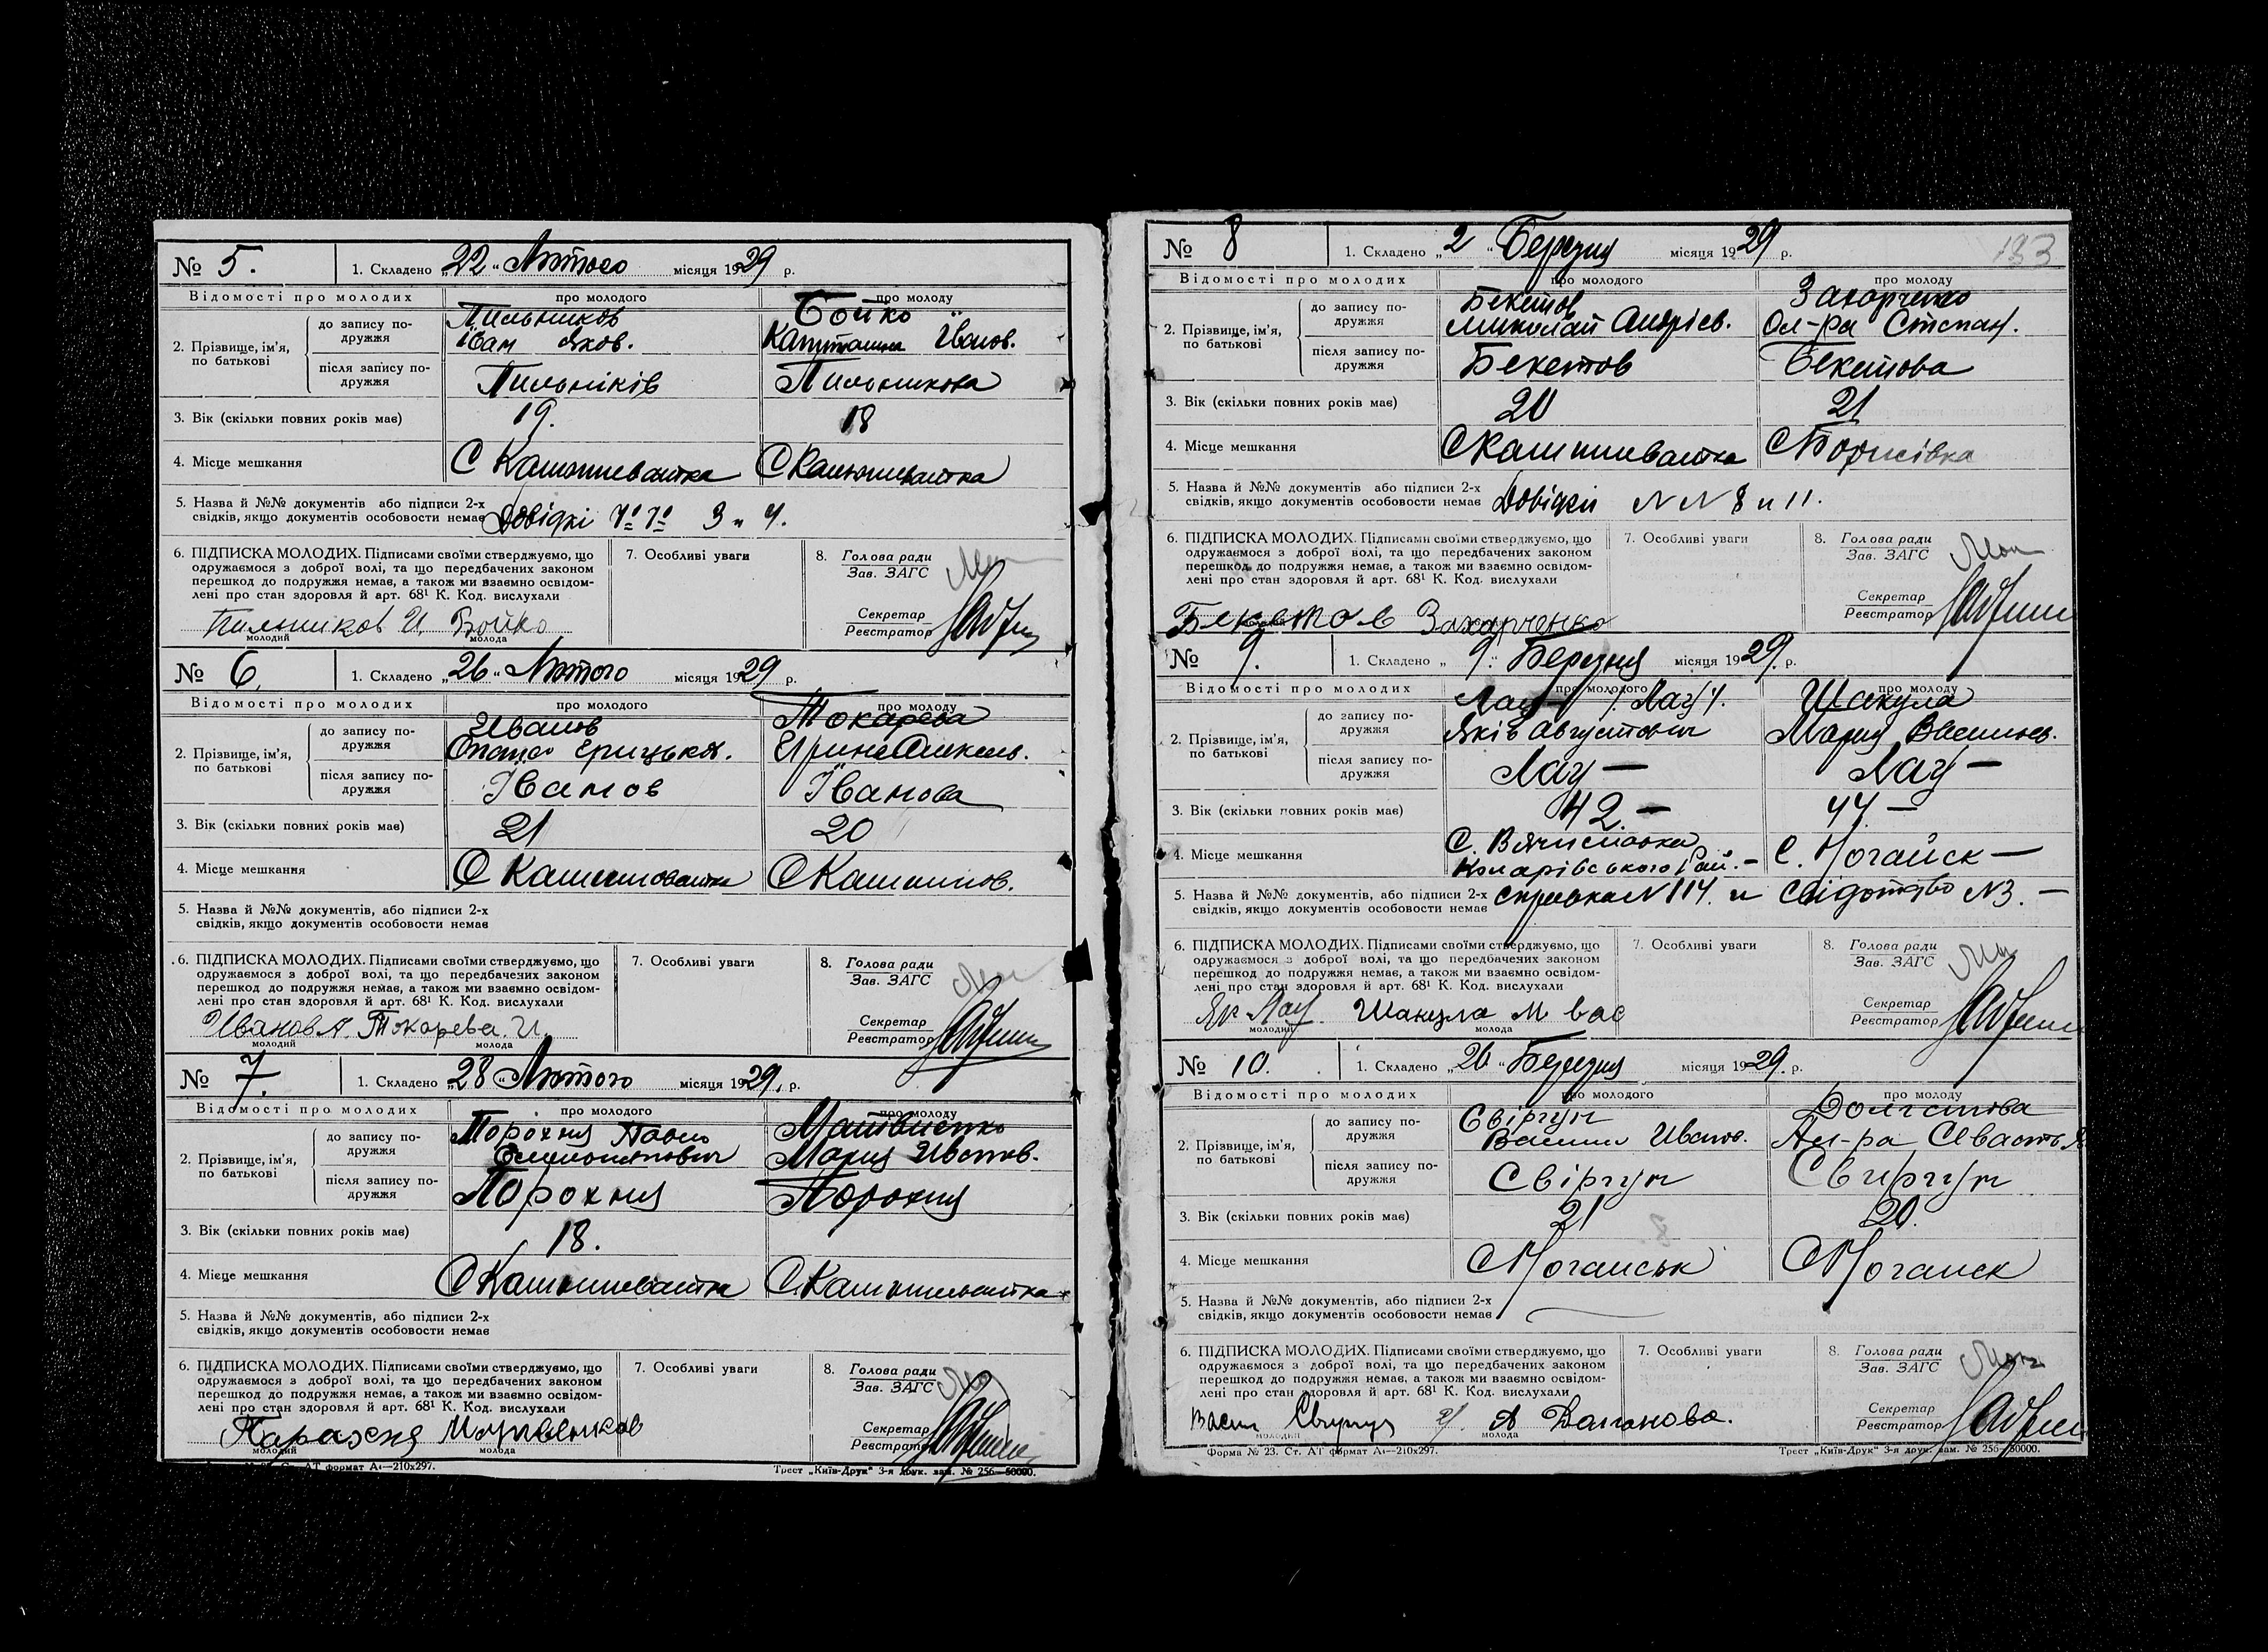 № 5. 1. Складено „22“ Лютого місяця 1929 р.
Відомості про молодих про молодого про молоду
2. Прізвище, ім'я, по батькові
до запису подружжя Пильников Бойко
Іван Яков. Капиталина Іванов.
після запису подружжя Пильніків Пильникова
3. Вік (скільки повних років має) 19. 18
4. Місце мешкання С
5. Назва й №№ документів або підписи 2-х
свідків, якщо документів особовости немає Довідкі №№ 3 и 4.
6. ПІДПИСКА МОЛОДИХ. Підписами своїми стверджуємо, що 7. Особливі уваги 8. Голова ради
одружаємося з доброї волі, та що передбачених законом Зав. ЗАГС
перешкод до подружжя немає, а також ми взаємно освідом-
лені про стан здоровля й арт. 68¹ К. Код. вислухали Секретар
Пильников И. Бойко Реєстратор
молодий молода
№ 6. 1. Складено „26“ Лютого місяця 1929 р.
Відомості про молодих про молодого про молоду
2. Прізвище, ім'я, по батькові
до запису подружжя Иванов Токарева
Грицьков. Ирина Алексеев.
після запису подружжя Іванов Іванова
3. Вік (скільки повних років має) 21 20
4. Місце мешкання С
5. Назва й №№ документів, або підписи 2-х
свідків, якщо документів особовости немає
6. ПІДПИСКА МОЛОДИХ. Підписами своїми стверджуємо, що 7. Особливі уваги 8. Голова ради
одружаємося з доброї волі, та що передбачених законом Зав. ЗАГС
перешкод до подружжя немає, а також ми взаємно освідом-
лені про стан здоровля й арт. 68¹ К. Код. вислухали Секретар
Иванов А. Токарева. И. Реєстратор
молодий молода
№ 7. 1. Складено „28“ Лютого місяця 1929. р.
Відомості про молодих про молодого про молоду
2. Прізвище, ім'я, по батькові
до запису подружжя Порохня Павло Матвиенко
Мария Иванов.
після запису подружжя Порохня Порохня
3. Вік (скільки повних років має) 18.
4. Місце мешкання С
5. Назва й №№ документів, або підписи 2-х
свідків, якщо документів особовости немає
6. ПІДПИСКА МОЛОДИХ. Підписами своїми стверджуємо, що 7. Особливі уваги 8. Голова ради
одружаємося з доброї волі, та що передбачених законом Зав. ЗАГС
перешкод до подружжя немає, а також ми взаємно освідом-
лені про стан здоровля й арт. 68¹ К. Код. вислухали Секретар
Реєстратор
молодий молода
АТ формат А₄—210х297. Трест „Київ-Друк“ 3-я друк. зам. № 256—50000.
133
№ 8 1. Складено „2“ Березня місяця 1929 р.
Відомості про молодих про молодого про молоду
2. Прізвище, ім'я, по батькові
до запису подружжя Бекетов Захарченко
Миколай Андрієв. Ол-ра Степан.
після запису подружжя Бекетов Бекетова
3. Вік (скільки повних років має) 20 21
4. Місце мешкання С С Борисівка
5. Назва й №№ документів або підписи 2-х
свідків, якщо документів особовости немає Довідки N N 8 и 11.
6. ПІДПИСКА МОЛОДИХ. Підписами своїми стверджуємо, що 7. Особливі уваги 8. Голова ради
одружаємося з доброї волі, та що передбачених законом Зав. ЗАГС
перешкод до подружжя немає, а також ми взаємно освідом-
лені про стан здоровля й арт. 68¹ К. Код. вислухали Секретар
Бекетов Захарченко Реєстратор
№ 9. 1. Складено „9.“ Березня місяця 1929. р.
Відомості про молодих про молодого про молоду
2. Прізвище, ім'я, по батькові
до запису подружжя Лау /Лау/. Шакула
Яків Августович Мария Васильев.
після запису подружжя Лау — Лау —
3. Вік (скільки повних років має) 42 — 44 —
4. Місце мешкання С. Вячиславка С. Ногайск —
Коларівського Рай. —
5. Назва й №№ документів, або підписи 2-х
свідків, якщо документів особовости немає Справка N 114. и Свідотство N3. —
6. ПІДПИСКА МОЛОДИХ. Підписами своїми стверджуємо, що 7. Особливі уваги 8. Голова ради
одружаємося з доброї волі, та що передбачених законом Зав. ЗАГС
перешкод до подружжя немає, а також ми взаємно освідом-
лені про стан здоровля й арт. 68¹ К. Код. вислухали Секретар
Як Лау. Шакула М вас Реєстратор
молодий молода
№ 10. 1. Складено „26“ Березня місяця 1929. р.
Відомості про молодих про молодого про молоду
2. Прізвище, ім'я, по батькові
до запису подружжя Свіргун
Василь Иванов.
після запису подружжя Свіргун Свиргун
3. Вік (скільки повних років має) 21 20.
4. Місце мешкання С Ногайськ С Ногайск
5. Назва й №№ документів, або підписи 2-х
свідків, якщо документів особовости немає
6. ПІДПИСКА МОЛОДИХ. Підписами своїми стверджуємо, що 7. Особливі уваги 8. Голова ради
одружаємося з доброї волі, та що передбачених законом Зав. ЗАГС
перешкод до подружжя немає, а також ми взаємно освідом-
лені про стан здоровля й арт. 68¹ К. Код. вислухали Секретар
Реєстратор
молодий молода
Форма № 23. Ст. АТ формат А₄—210х297. Трест „Київ-Друк“ 3-я друк. зам. № 256—50000.